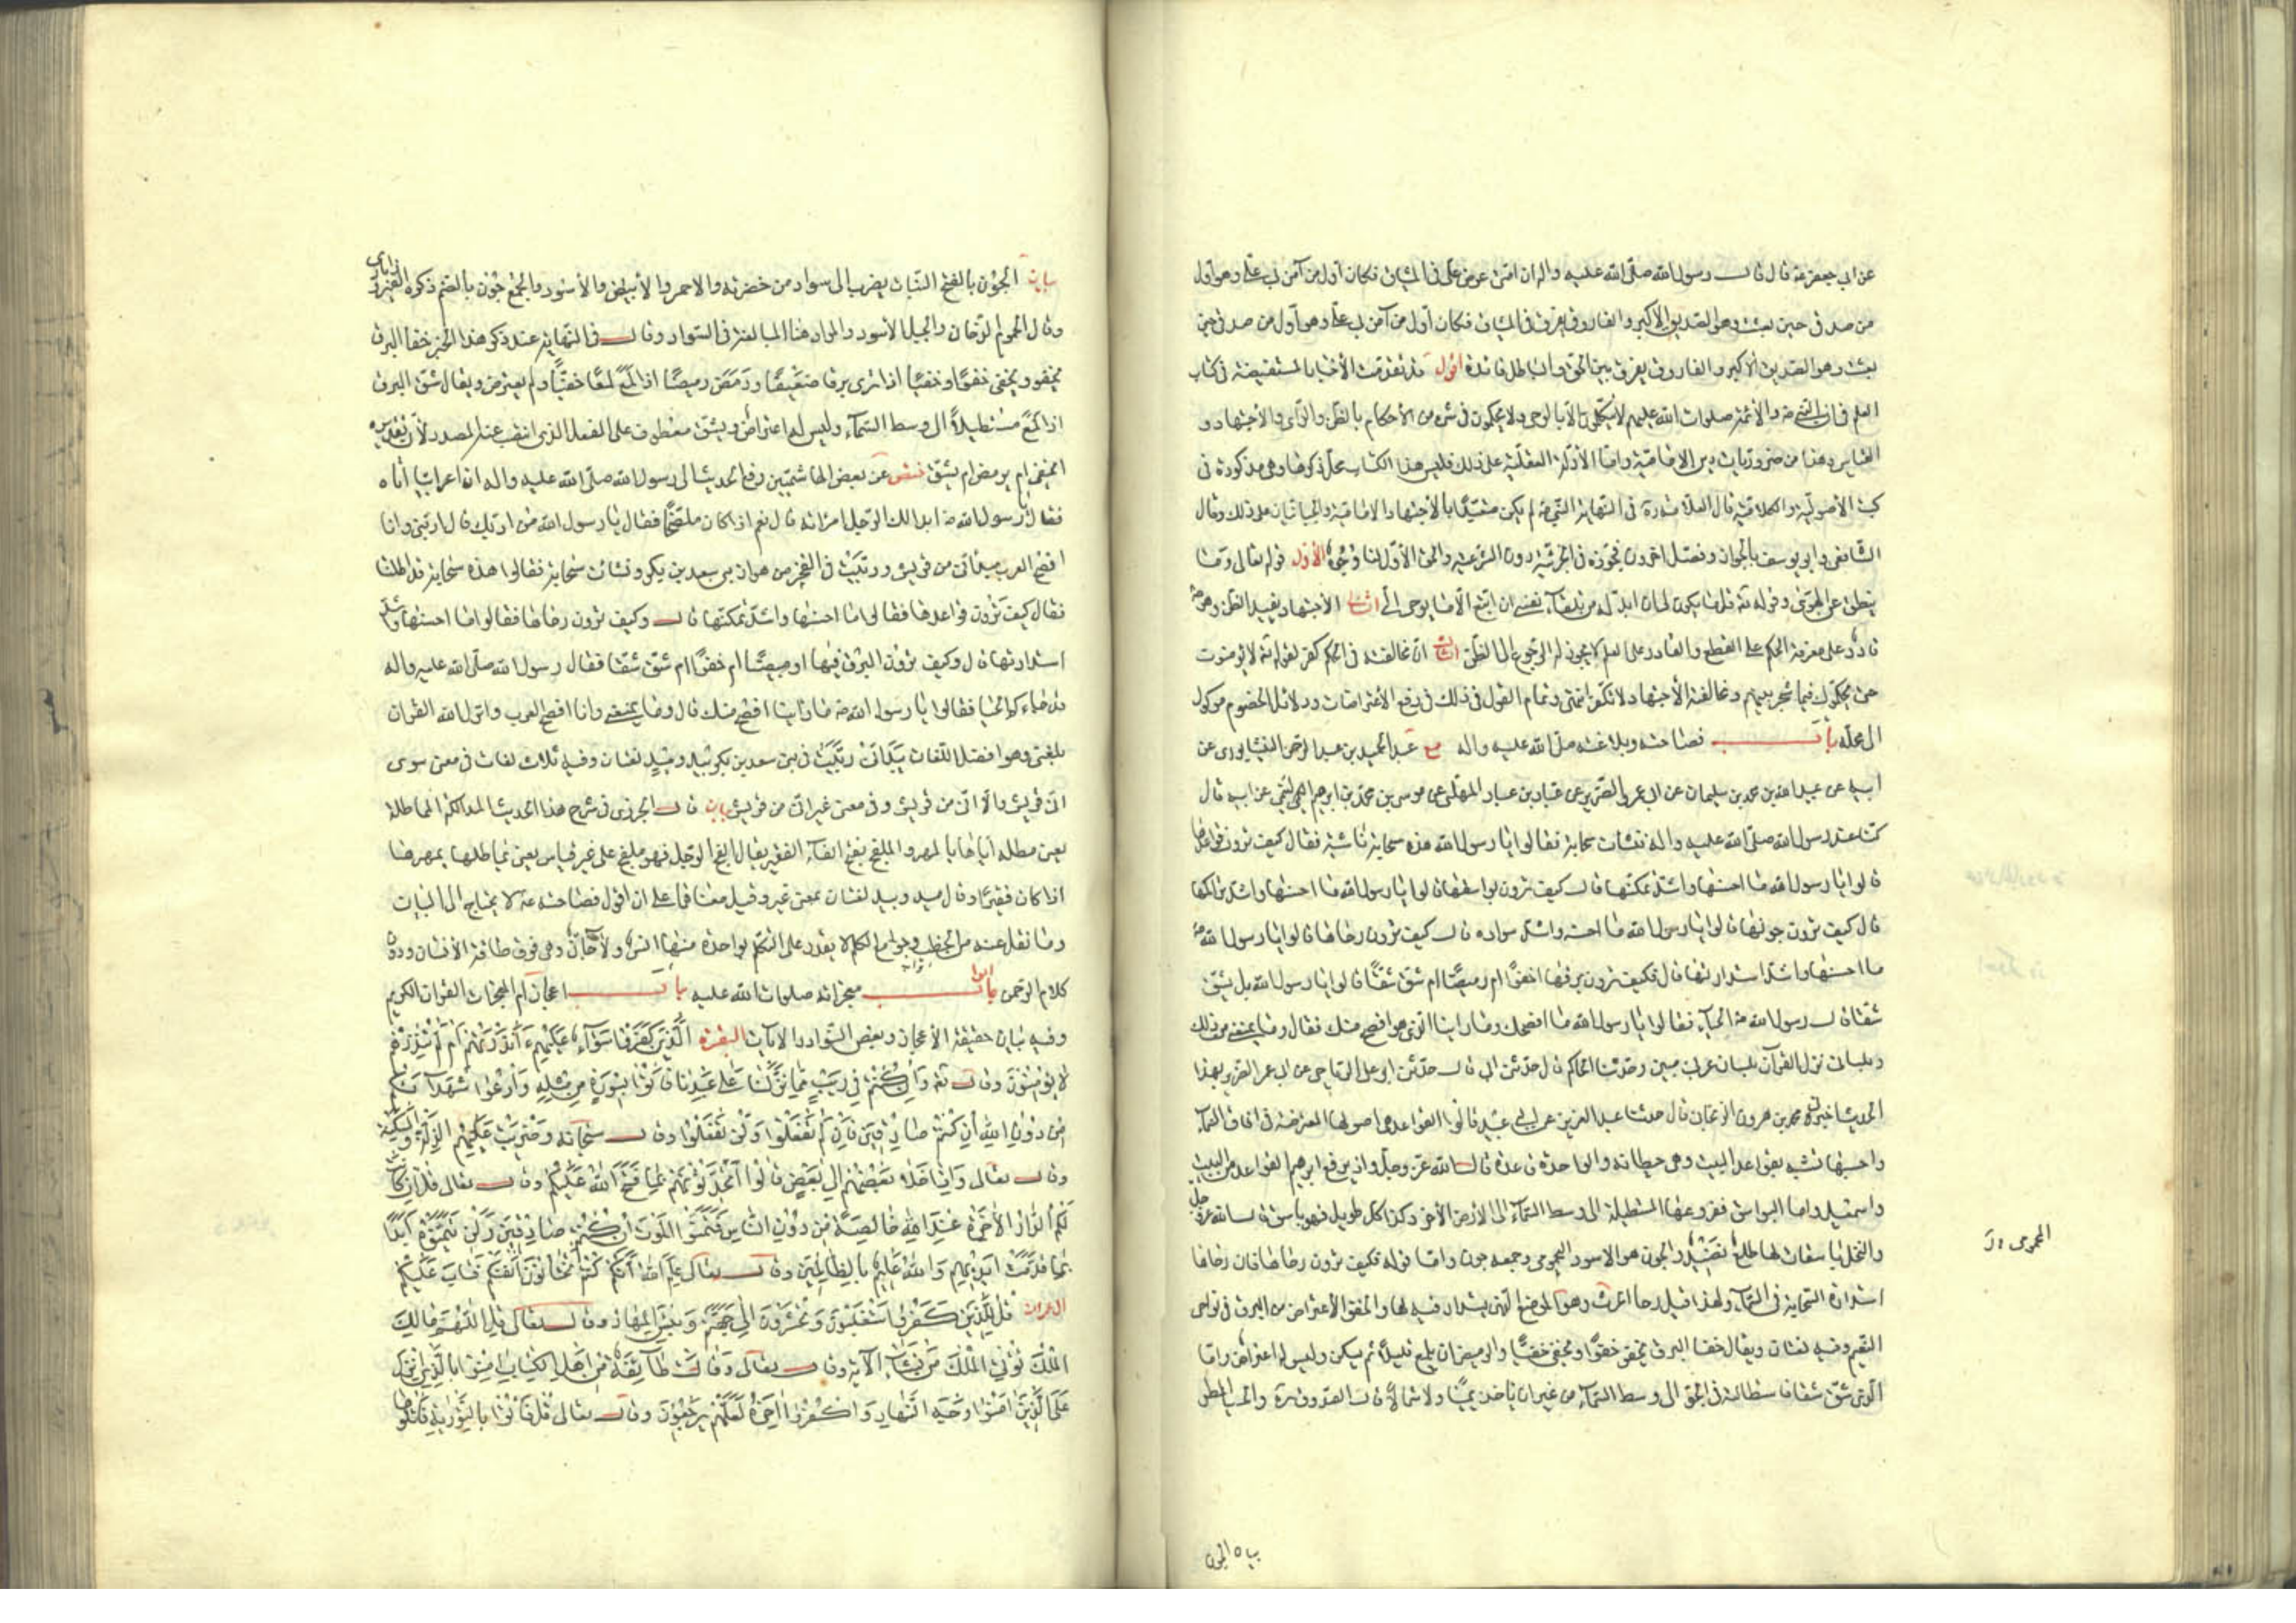 عن ابي جعفر عه قال قال رسول الله صلى الله عليه واله ان امتي عرض علي في الميثاق فكان اول من آمن بي علي وهو اول
من صدقني حين بعثت وهو الصديق الاكبر والفاروق يفرق في الميثاق فكان اول من آمن بي علي وهو اول من صدقني حين
بعثت وهو الصديق الاكبر والفاروق يفرق بين الحق والباطل فائدة اقول قد تقدمت الأخبار المستفيضة في كتاب
العلم في ان النبي صه والأئمة صلوات الله عليهم لا يتكلمون الا بالوحي ولا يحكمون في شيء من الأحكام بالظن والرأي والأجتهاد و
القياس وهذا من ضروريات دين الإمامية واما الأدلة العقلية على ذلك فليس هذا الكتاب محل ذكرها وهي مذكورة في
كتب الأصولية والكلامية قال العلامة ره في النهاية النبي صه لم يكن متعبدا بالأجتهاد والامامية والجبائيان على ذلك وقال
الشافعي وابو يوسف بالجواز وفصل اخرون فجوزه في الحربية دون الشرعية والحق الأول لنا وجوه الأول قوله تعالى وما
ينطق عن الهوى وقوله تعه قل ما يكون لي ان ابدله من تلقاء نفسي ان اتبع الا ما يوحى الي الثاني الأجتهاد يفيد الظن وهو صه
قادر على معرفة الحكم على القطع والقادر على العلم لا يجوز له الرجوع الى الظن الثالث ان مخالفته في الحكم كفر لقوله تعه لا يؤمنون
حتى يحكموك فيما شجر بينهم ومخالفة الأجتهاد لا تكفر انتهى وتمام القول في ذلك في دفع الأعتراضات ودلائل الخصوم موكول
الى محله باب فصاحته وبلاغته صلى الله عليه واله مع عبد الحميد بن عبد الرحمن النيشابوري عن
ابيه عن عبيد الله بن محمد بن سليمان عن ابي عمرو الضرير عن عباد بن عباد المهلبي عن موسى بن محمد بن ابرهيم التيمي عن ابيه قال
كنا عند رسول الله صلى الله عليه واله فنشأت سحابة فقالوا يا رسول الله هذه سحابة ناشئة فقال كيف ترون قواعدها
قالوا يا رسول الله ما احسنها واشد تمكنها قال كيف ترون بواسقها قالوا يا رسول الله ما احسنها واشد تراكمها
قال كيف ترون جونها قالوا يا رسول الله ما احسنه واشد سواده قال كيف ترون رحاها قالوا يا رسول الله صه
ما احسنها واشد استدارتها قال فكيف ترون برقها اخفوا ام وميضا ام شق شقا قالوا يا رسول الله بل يشق
شقا قال رسول الله صه الحياء فقالوا يا رسول الله ما افصحك وما راينا الذي هو افصح منك فقال وما يمنعني من ذلك
وبلساني نزل القرآن بلسان عربي مبين وحدثنا الحاكم قال حدثني ابي قال حدثني ابو علي الرياحي عن ابي عمر الضرير بهذا
الحديث اخبرني محمد بن هرون الزنجاني قال حدثنا علي بن عبد العزيز عن ابي عبيد قالوا القواعد هي اصولها المعترضة في افاق السماء
واحسبها تشبه بقواعد البيت وهي حيطانه والواحدة قاعدة قال الله عز وجل واذ يرفع ابرهيم القواعد من البيت
واسمعيل واما البواسق ففروعها المستطيلة الى وسط السماء الى الأرض الأخر وكذا كل طويل فهو باسق قال الله عز وجل
والنخل باسقات لها طلع نضيد والجون هو الاسود اليحمومي وجمعه جون واما قوله فكيف ترون رحاها فان رحاها
استدارة السحابة في السماء ولهذا قيل رحا الحرب وهو الموضع الذي يستدار فيه لها والخفو الأعتراض من البرق في نواحي
الغيم وفيه لغتان ويقال خفا البرق يخفو خفوا ويخفي خفيا والوميض ان يلمع قليلا ثم يسكن وليس له اعتراض واما
الذي شق شقا فاستطالته في الجو الى وسط السماء من غير ان ياخذ يمينا ولا شمالا قال الصدوق ره والحيا المطر
اليحمومي
بيان الجون
بيان الجون بالفتح النبات يضرب الى سواد من خضرته والاحمر والأبيض والأسود والجمع جون بالضم ذكره الفيروزابادي
وقال اليحموم الدخان والجبل الأسود والمراد هنا المبالغة في السواد وقال في النهاية عند ذكر هذا الخبر خفا البرق
يخفو ويخفي خفوا وخفيا اذا برق برقا ضعيفا وومض وميضا اذا لمع لمعا خفيا ولم يعترض ويقال شق البرق
اذا لمع مستطيلا الى وسط السماء وليس له اعتراض ويشق معطوف على الفعل الذي انتصب عنه المصدر لأن تقديره
ايخفي ام يومض ام يشق ختص عن بعض الهاشميين رفع الحديث الى رسول الله صلى الله عليه واله ان اعرابيا اتاه
فقال يا رسول الله صه ايدالك الرجل امراته قال نعم اذا كان ملفجا فقال يا رسول الله من ادبك قال الله ادبني وانا
افصح العرب ميد اني من قريش وربيت في الفخر من هوازن بني سعد بن بكر ونشات سحابة فقالوا هذه سحابة قد اظلتنا
فقال كيف ترون قواعدها فقالوا ما احسنها واشد تمكنها قال وكيف ترون رحاها فقالوا ما احسنها واشد
استدارتها قال وكيف ترون البرق فيها اوميضا ام خفوا ام شق شقا فقال رسول الله صلى الله عليه واله
قد جاءكم الحيا فقالوا يا رسول الله صه ما راينا افصح منك قال وما يمنعني وانا افصح العرب وانزل الله القران
بلغتي وهو افضل اللغات بيد اني ربيت في بني سعد بن بكر بيد وميد لغتان وفيه ثلاث لغات في معنى سوى
اني من قريش والا اني من قريش وفي معنى غير اني من قريش بيان قال الجزري في شرح هذا الحديث المدالكة المماطلة
يعني مطله اياها بالمهر والملفج بفتح الفاء الفقير يقال الفج الرجل فهو ملفج على غير قياس يعني يماطلها بمهرها
اذا كان فقيرا وقال ميد وبيد لغتان بمعنى غير وقيل معناهما على ان اقول فصاحته عه لا يحتاج الى البيان
وما نقل عنه من الخطب وجوامع الكلم لا يقدر على التكلم بواحدة منها انس ولا جان وهي فوق طاقة الأنسان ودون
كلام الرحمن ابواب معجزاته صلوات الله عليه باب اعجاز ام المعجزات القران الكريم
وفيه بيان حقيقة الأعجاز وبعض النوادر الايات البقرة الَّذِينَ كَفَرُوا سَوَاءٌ عَلَيْهِمْ ءَاَنْذَرْتَهُمْ اَمْ لَمْ تُنْذِرْهُمْ
لا يُؤْمِنُونَ وقال تعه وَاِنْ كُنْتُمْ فِي رَيْبٍ مِمَّا نَزَّلْنَا عَلَى عَبْدِنَا فَأْتُوا بِسُورَةٍ مِنْ مِثْلِهِ وَادْعُوا شُهَدَاءَكُمْ
مِنْ دُونِ اللهِ اِنْ كُنْتُمْ صَادِقِينَ فَاِنْ لَمْ تَفْعَلُوا وَلَنْ تَفْعَلُوا وقال سبحانه وَضُرِبَتْ عَلَيْهِمُ الذِّلَّةُ وَالْمَسْكَنَةُ
وقال تعالى وَاِذَا خَلا بَعْضُهُمْ اِلَى بَعْضٍ قَالُوا اَتُحَدِّثُونَهُمْ بِمَا فَتَحَ اللهُ عَلَيْكُمْ وقال تعالى قُلْ اِنْ كَانَتْ
لَكُمُ الدَّارُ الْأخِرَةُ عِنْدَ اللهِ خَالِصَةً مِنْ دُونِ النَّاسِ فَتَمَنَّوُا الْمَوْتَ اِنْ كُنْتُمْ صَادِقِينَ وَلَنْ يَتَمَنَّوْهُ اَبَدًا
بِمَا قَدَّمَتْ اَيْدِيهِمْ وَاللهُ عَلِيمٌ بِالظَّالِمِينَ وقال تعالى عَلِمَ اللهُ اَنَّكُمْ كُنْتُمْ تَخْتَانُونَ اَنْفُسَكُمْ فَتَابَ عَلَيْكُمْ
ال عمران قُلْ لِلَّذِينَ كَفَرُوا سَتُغْلَبُونَ وَتُحْشَرُونَ اِلَى جَهَنَّمَ وَبِئْسَ الْمِهَادُ وقال تعالى قُلِ اللَّهُمَّ مَالِكَ
الْمُلْكِ تُؤْتِي الْمُلْكَ مَنْ تَشَاءُ الآية وقال تعالى وَقَالَتْ طَائِفَةٌ مِنْ اَهْلِ الْكِتَابِ اٰمِنُوا بِالَّذِي اُنْزِلَ
عَلَى الَّذِينَ اٰمَنُوا وَجْهَ النَّهَارِ وَاكْفُرُوا اٰخِرَهُ لَعَلَّهُمْ يَرْجِعُونَ وقال تعالى قُلْ فَأْتُوا بِالتَّوْرٰيةِ فَاتْلُوهَا